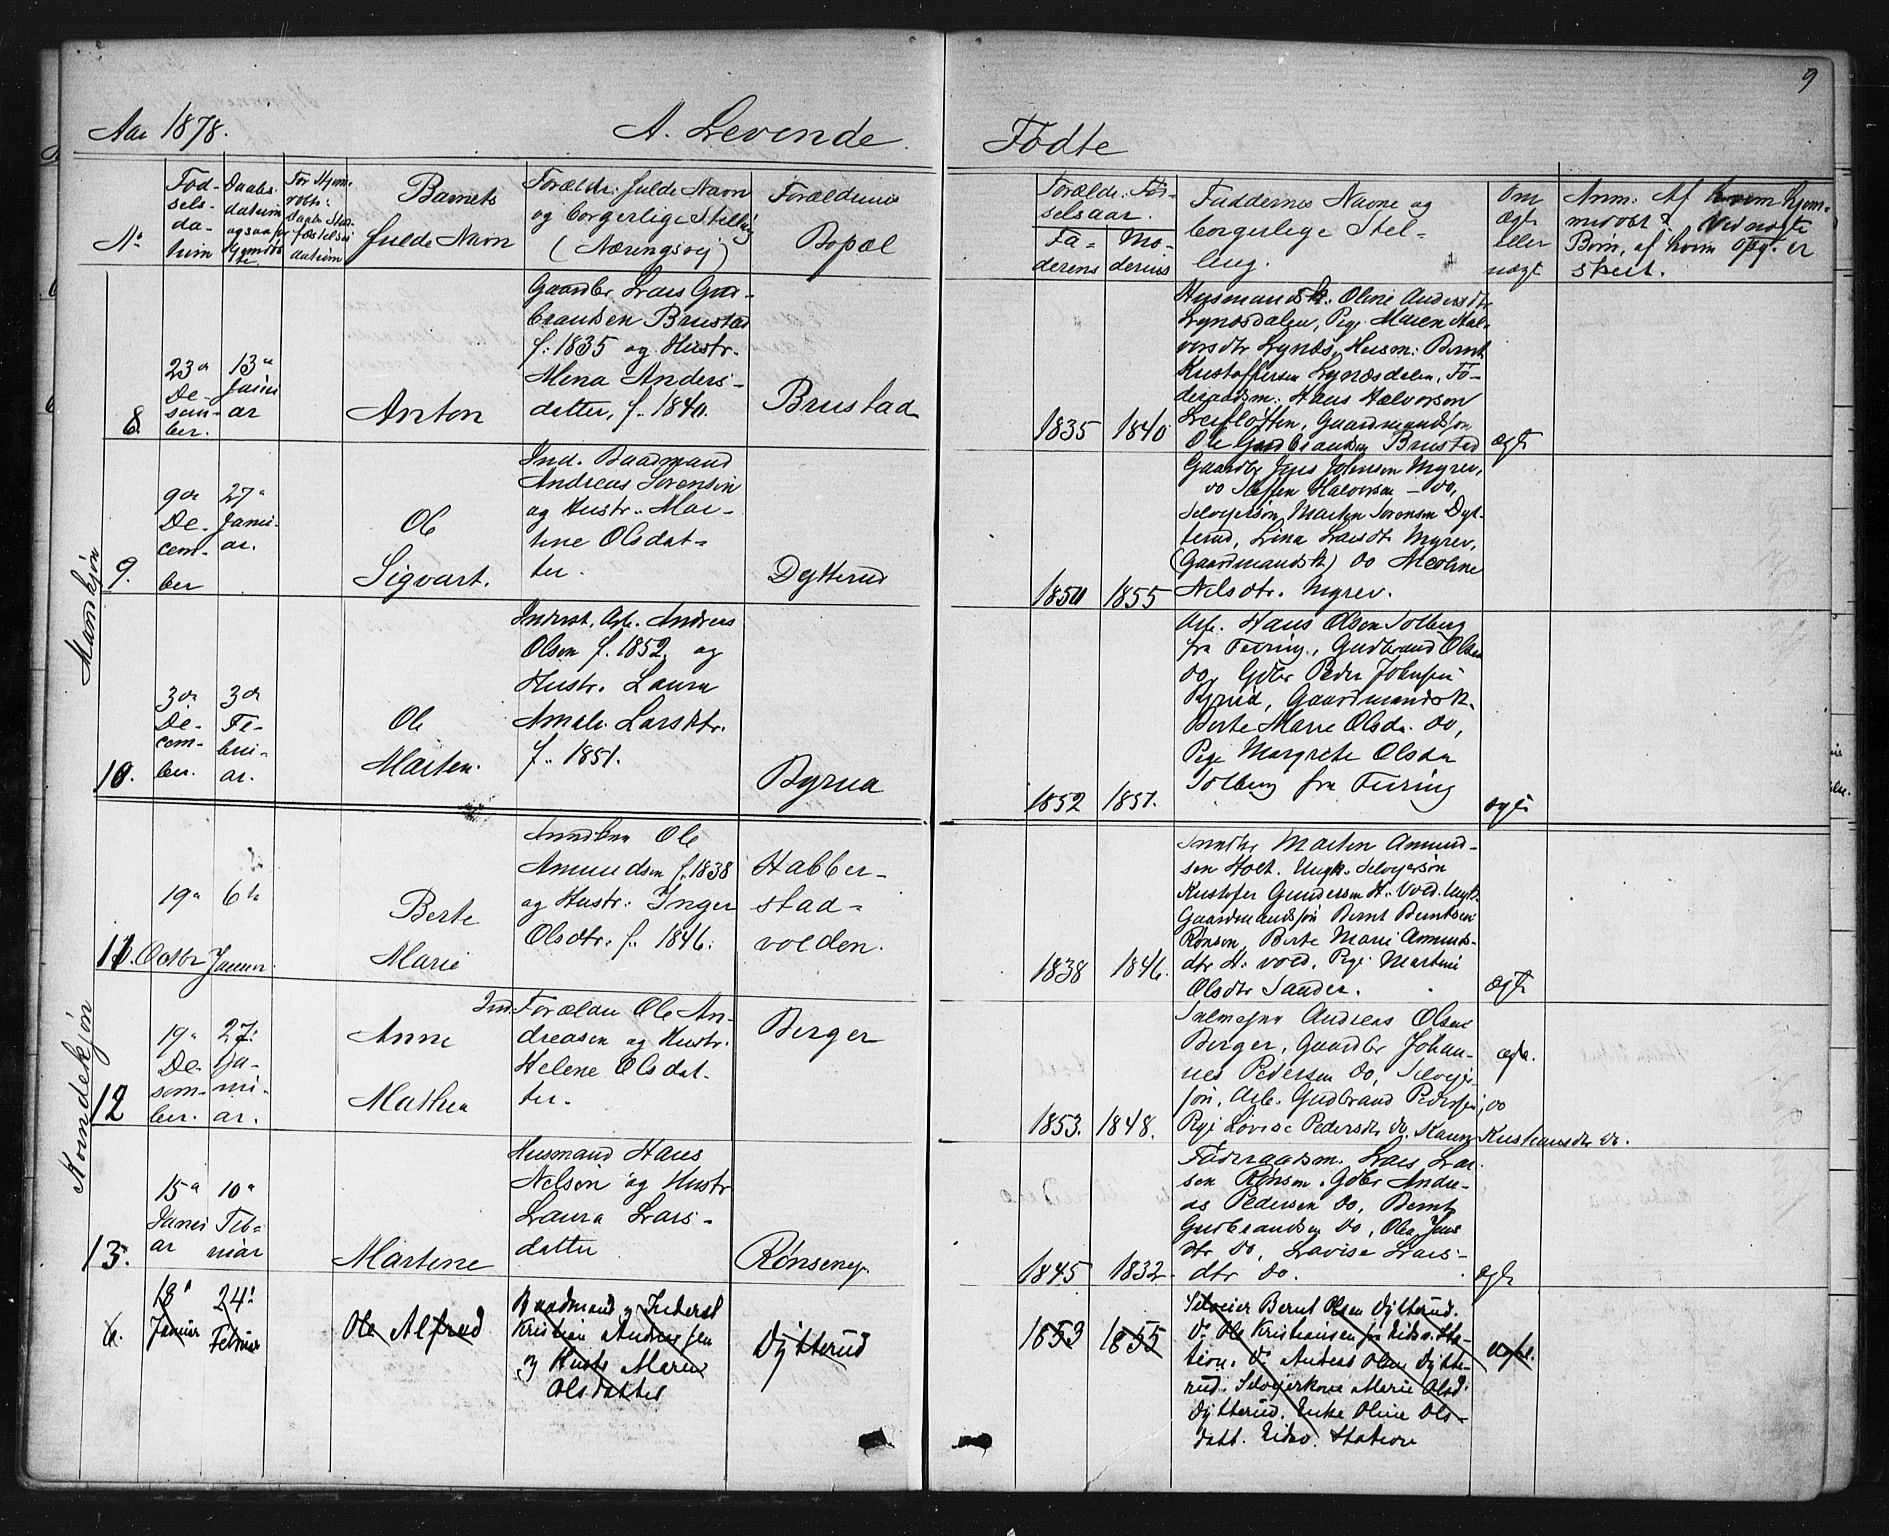 9
Aar 1878.
A. Levende
Födte
No
Föd-
sels-
da-
tum
Daabs-
datum
Barnets
fulde Navn
Forældr. fulde Navn
og borgerlige Stilling
(Næringsvej)
Forældrenes
Bopæl
Forældr. Fød-
selsaar.
Fa-
derens
Mo-
derens
Faddernes Navne og
borgerlige Stel-
ling.
Om
ægte
eller
uægte
Anm. Af hvem hjem-
medøbt? Ved uægte
Børn, af hvem opg. er
skeet.
Mandkjøn
8.
23de
De-
sem-
ber.
13de
Janu
ar
Anton
Gaardbr Lars Gud-
brandsen Brustad
f. 1835 og Hustr.
Mena Anders-
datter, f. 1840.
Brustad
1835
1840
Husmandsk. Oline Andersdtr
Lynæsdalen, Pige Maren Hal-
vorsdtr Lynæs, Husm. Bernt
Kristoffersen Lynæsdalen, Fø-
deraadsm. Hans Halvorsen
Gaardmandssøn
Ole Gudbrandsen Brustad
ægte
9.
9de
De-
cem-
ber
27de
Janu-
ar.
Ole
Sigvart.
Ind. Baadmand
Andreas Sørensen
og Hustr. Mar-
tine Olsdat-
ter.
Dytterud
1850
1855
Gaardbr Jens Johnsen Myrer,
do Steffen Halvorsen - do,
Selvejersøn Martin Sørensen Dyt-
terud, Lina Larsdt Myrer,
(Gaardmandsk) do Nicoline
Nelsdtr. Myrer.
10.
3de
De-
cem-
ber.
3de
Fe-
bru-
ar.
Ole
Marten.
Inderst, Arb. Andreas
Olsen f. 1852 og
Hustr. Laura
Amali Larsdtr.
f. 1851.
Byrud
1852
1851.
Arb. Hans Olsen Solberg
fra Feiring, Gudbrand Olsen
do, Gdbr Peder Johnsen
Byrud, Gaardmandsk.
Berte Marie Olsd. do,
Pige Margrete Olsda
Solberg fra Feiring
ægte
Kvindekjøn
11.
19de
Octbr
6te
Januar.
Berte
Marie
Ole
Amundsen f. 1838
og Hustr: Inger
Olsdtr. f. 1846.
Habber-
stad-
volden.
1838
1846.
Marten Amund-
sen Holt. Ungk. Selvejersøn
Kristofer Gundersen H. vold. Ungk.
Gaardmandssøn Bernt Berntsen
Rønsen, Berte Marie Amunds-
dtr H. vold, Pige Martene
Olsdtr Sander.
ægte
12
19de
De-
sem-
ber.
27.
Ja-
nu-
ar.
Anne
Mathea
Ind. Forældre Ole An-
dreasen og Hustr.
Helene Olsdat-
ter.
Berger
1853.
1848.
Andreas Olsen
Berger, Gaardbr Johan-
nes Pedersen do, Selvejer-
søn, Arb. Gudbrand Pedersen, do
Pige Lovise Pedersdtr do. Karen Kristiansdtr do.
ægte.
13.
15de
Janu
ar
10de
Feb-
ruar
Martene
Husmand Hans
Nelsen og Hustr
Laura Lars-
datter
Rønseneje
1845
1832
Føderaadsm. Lars Lar-
sen Rønsen. Gdbr Andre-
as Pedersen do, Bernt
Gudbrandsen do, Olea Jens
dtr do, Lovise Lars-
dtr do.
ægte
6.
18de
Januar
24de
Februar
Ole Alfred
Baadmand og Inderst
Kristian Andreasen
og Hustr Maren
Olsdatter
Dytterud
1853
1855
Selveier Bernt Olsen Dytterud.
Do Ole Kristiansen fra Eidsv. Sta-
tion. Do Anders Olsen Dytte-
rud. Selveierkone Marie Olsd.
Dytterud. Enke Oline Ols-
datt. Eidsv. Station
ægte.